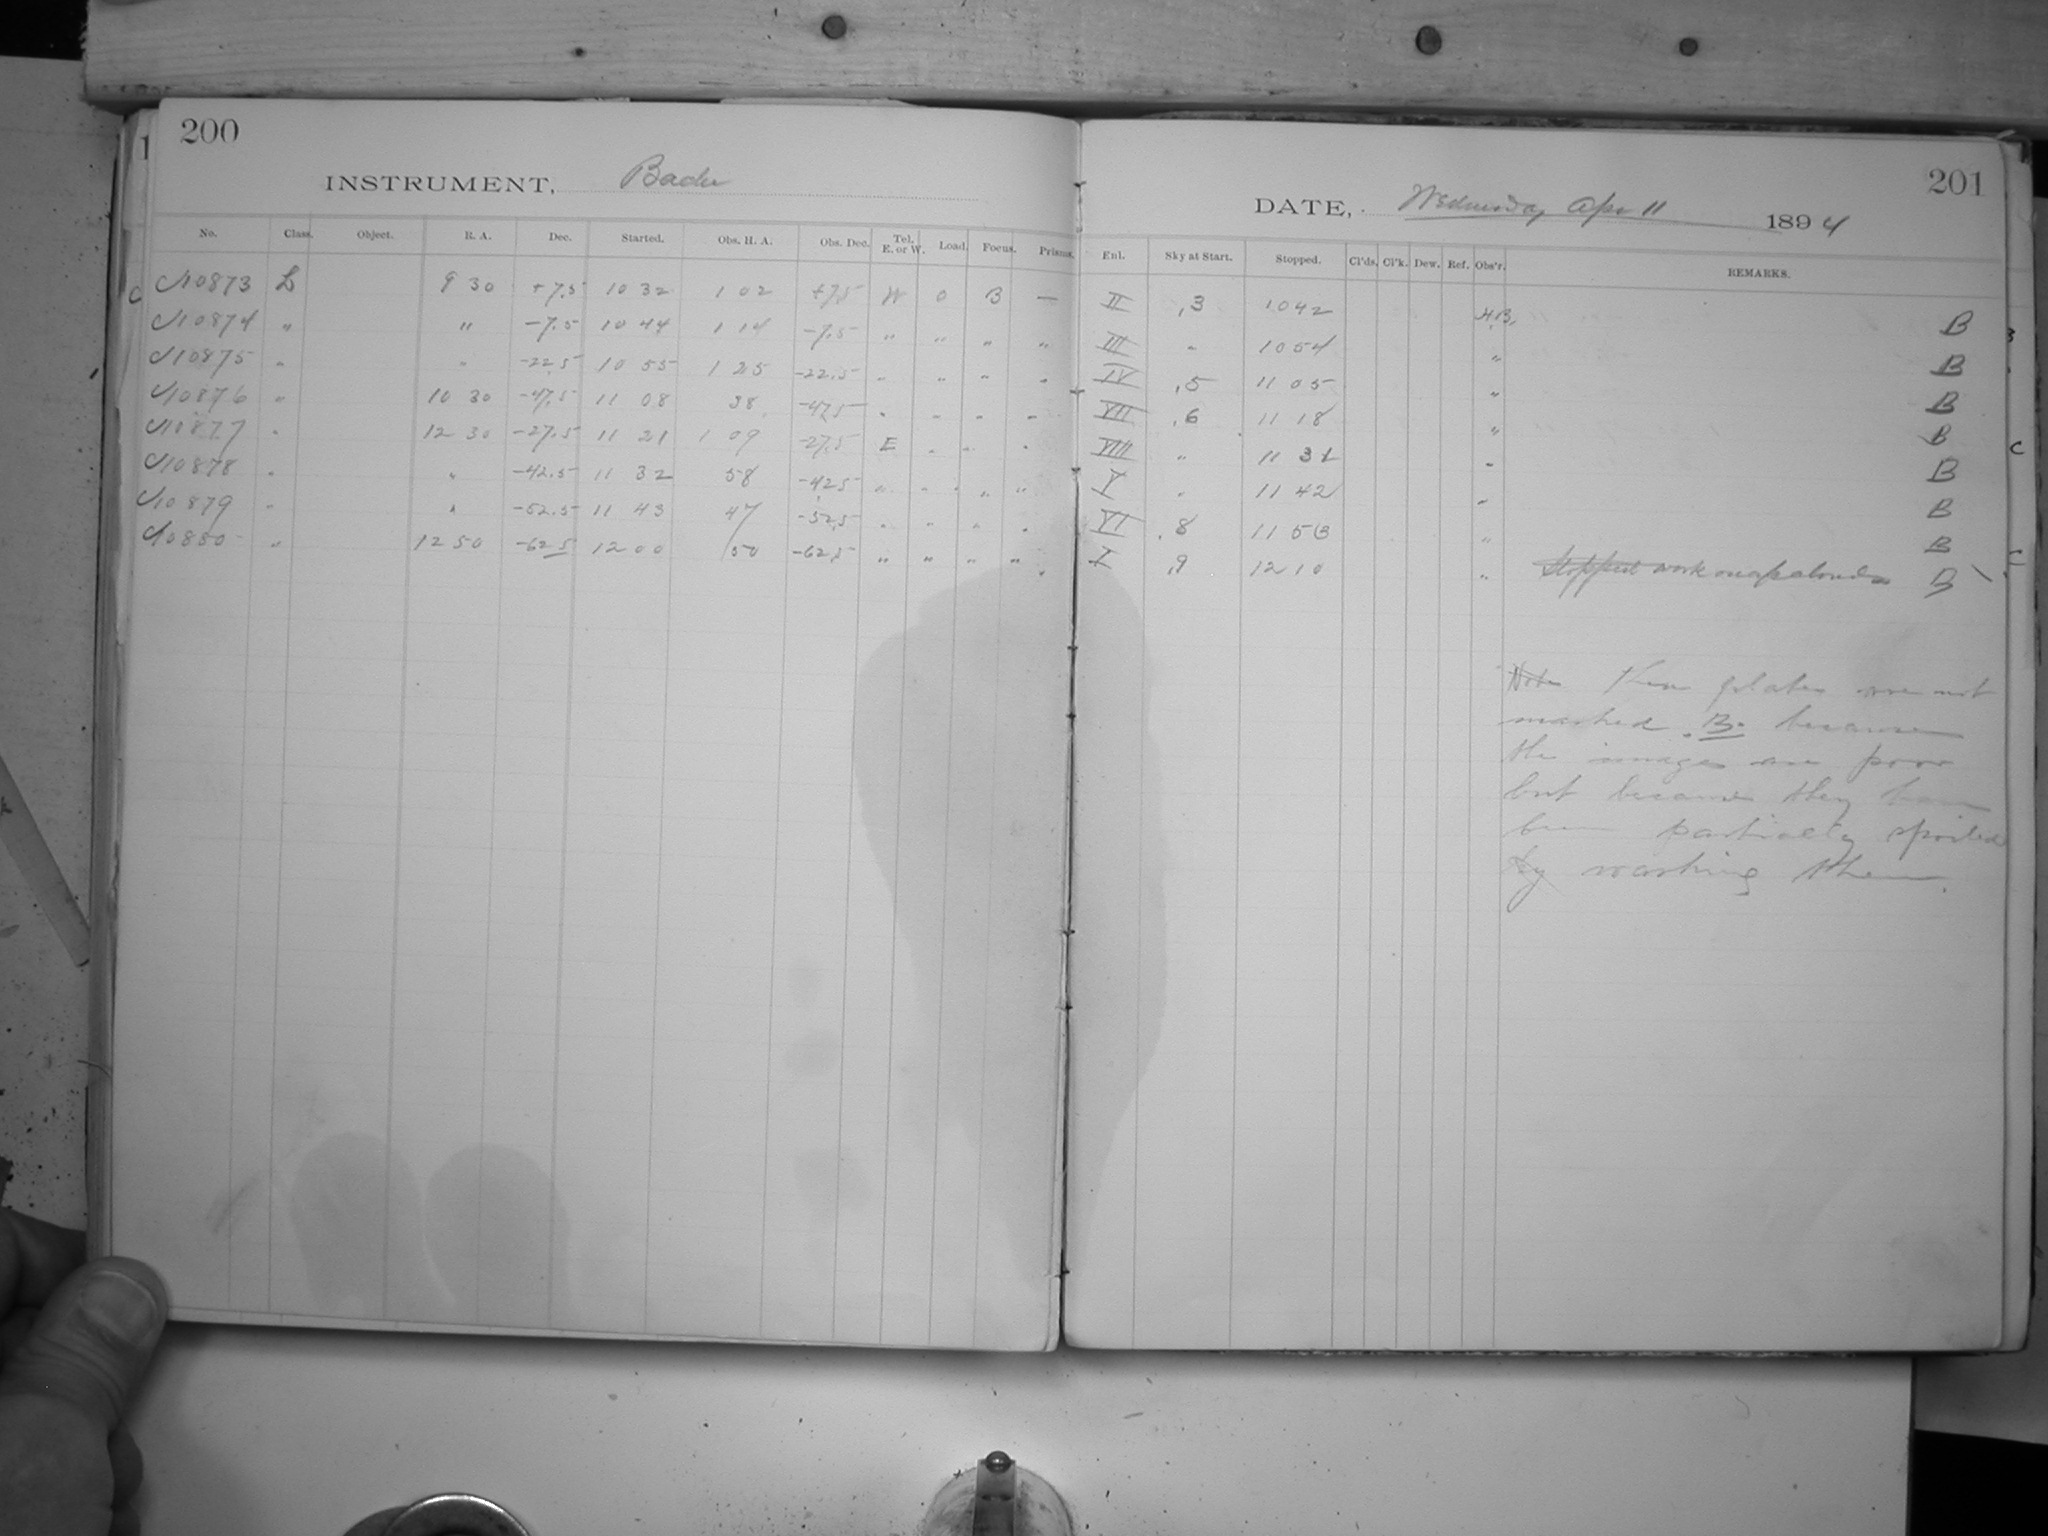 200
INSTRUMENT, Bache
No. Class. Object. R. A. Dec. Started. Obs. H. A. Obs. Dec. Tel. E. or W. Load. Focus. Prisms.
10873 L 9 30 +7.5 10 32 1 02 +7.5 W 0 B —
10874 " " -7.5 10 44 1 14 -7.5 " " " "
10875 " " -22.5 10 55 1 25 -22.5 " " " "
10876 " 10 30 -47.5 11 08 38 -47.5 " " " "
10877 " 12 30 -27.5 11 21 1 09 -27.5 E " " "
10878 " " -42.5 11 32 58 -42.5 " " " "
10879 " " -52.5 11 43 47 -52.5 " " " "
10880 " 12 50 -62.5 12 00 50 -62.5 " " " "
201
DATE, Wednesday Apr 11 1894
Enl. Sky at Start. Stopped. Cl'ds. Cl'k. Dew. Ref. Obs'r. REMARKS.
II .3 10 42 H.B. B
III " 10 54 " B
IV .5 11 05 " B
VII .6 11 18 " B
VIII " 11 31 " B
V " 11 42 " B
VI .8 11 53 " B
I .9 12 10 " Stopped work clouds B
Note These plates are not
marked B. because
the images are poor
but because they have
been partially spoiled
by washing them.